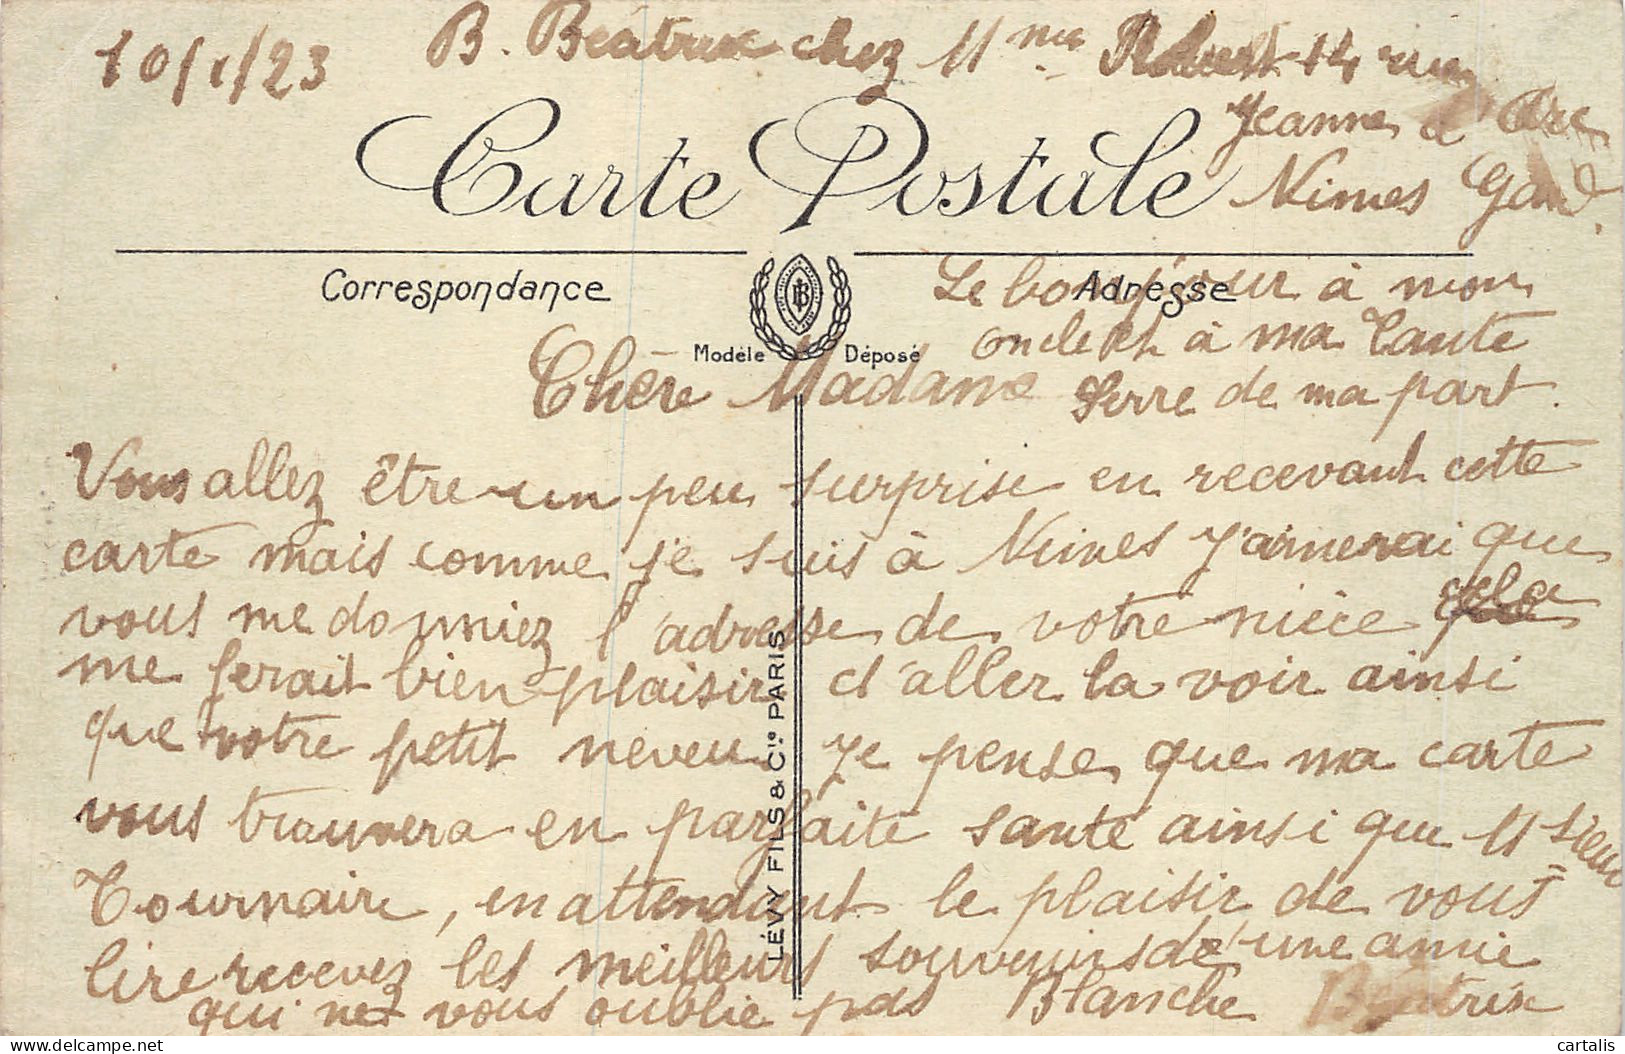 10/1/23
B. Béatrix chez Mme Robert 14 rue
Jeanne d'Arc
Nimes Gard.
Carte Postale
Correspondance
Adresse
Modèle Déposé
Le bonjour à mon
oncle et à ma Tante
Serre de ma part.
Chère Madame
Vous allez être un peu surprise en recevant cette
carte mais comme je suis à Nimes J'aimerai que
vous me donniez l'adresse de votre nièce
me ferait bien plaisir d'aller la voir ainsi
que votre petit neveu Je pense que ma carte
vous trouvera en parfaite santé ainsi que Msieur
Tournaire, en attendant le plaisir de vous
lire recevez les meilleurs souvenirs de une amie
qui ne vous oublie pas Blanche Béatrix
LÉVY FILS & Cie PARIS
cartalis
delcampe.net